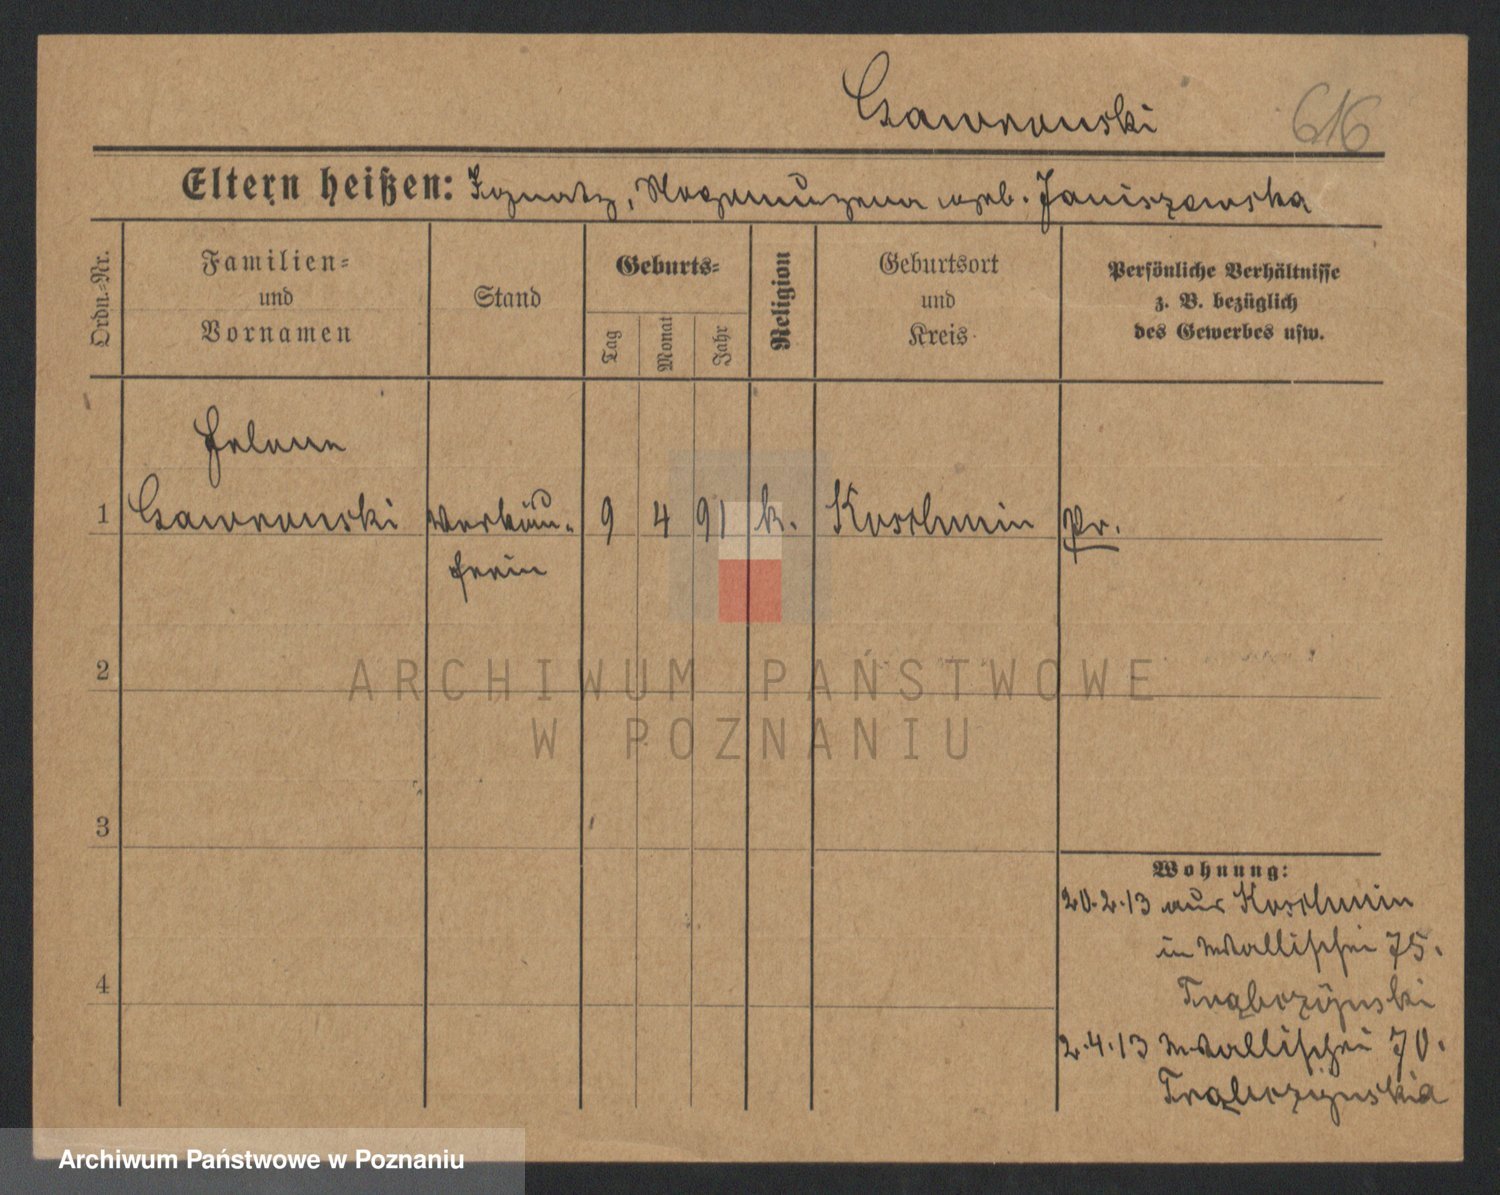 Gawronski 616
Eltern heißen: Ignatz, Nepomuzena geb. Janiszewska
Ordn.-Nr.
Familien-
und
Vornamen
Stand
Geburts-
Tag
Monat
Jahr
Religion
Geburtsort
und
Kreis
Persönliche Verhältnisse
z. B. bezüglich
des Gewerbes usw.
Helene
1 Gawronski Verkäu- 9 4 91 k. Koschmin Pr.
ferin
2
ARCHIWUM PAŃSTWOWE
W POZNANIU
3
Wohnung:
20.2.13 aus Koschmin
in Wallischei 75.
4
2.4.13 Wallischei 70.
Archiwum Państwowe w Poznaniu